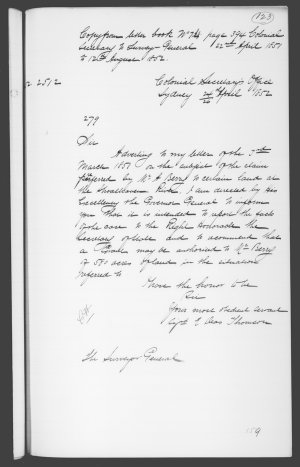 (123)
Copy from letter book No 74 page 394 Colonial
Secretary to Surveyor General 22nd April 1851
to 12th August 1852.
2512
Colonial Secretary's Office
Sydney April 1852
279
Sir
Adverting to my letter of the
March 1851 on the subject of the claim
preferred by Mr A Berry to certain land at
the Shoalhaven River, I am directed by His
Excellency the Governor General to inform
you that it is intended to report the
of the case to the Right Honorable the
Secretary of State and to recommend that
a Grant may be authorised to Mr Berry
of 580 acres of land in the situation
referred to
I have the honor to be
Sir
Your most obedient servant
Sgd E Deas Thomson
The Surveyor General
159